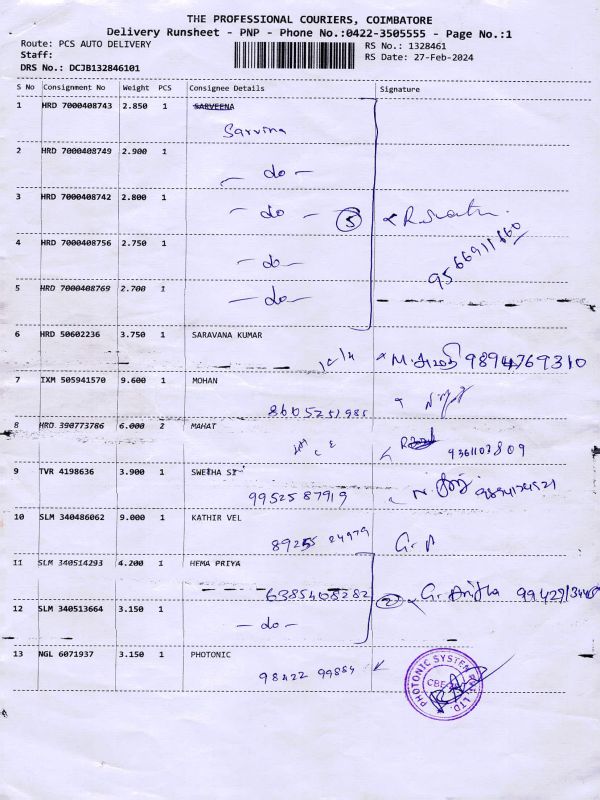 THE PROFESSIONAL COURIERS, COIMBATORE
Delivery Runsheet - PNP - Phone No.:0422-3505555 - Page No.:1
Route: PCS AUTO DELIVERY RS No.: 1328461
Staff: RS Date: 27-Feb-2024
DRS No.: DCJB132846101
S No Consignment No Weight PCS Consignee Details Signature
1 HRD 7000408743 2.850 1 SARVEENA
Sarvina
2 HRD 7000408749 2.900 1
— do —
3 HRD 7000408742 2.800 1
— do — 5
4 HRD 7000408756 2.750 1
— do — 9566911660
5 HRD 7000408769 2.700 1
— do —
6 HRD 50602236 3.750 1 SARAVANA KUMAR
9894769310
7 IXM 505941570 9.600 1 MOHAN
8605251985
8 HRD 390773786 6.000 2 MAHAT
9361103809
9 TVR 4198636 3.900 1 SWETHA
9952587919
10 SLM 340486062 9.000 1 KATHIR VEL
89255 24979
11 SLM 340514293 4.200 1 HEMA PRIYA
6385408282 2
12 SLM 340513664 3.150 1
— do —
13 NGL 6071937 3.150 1 PHOTONIC
98422 99884
PHOTONIC SYSTEM LTD.
CBE